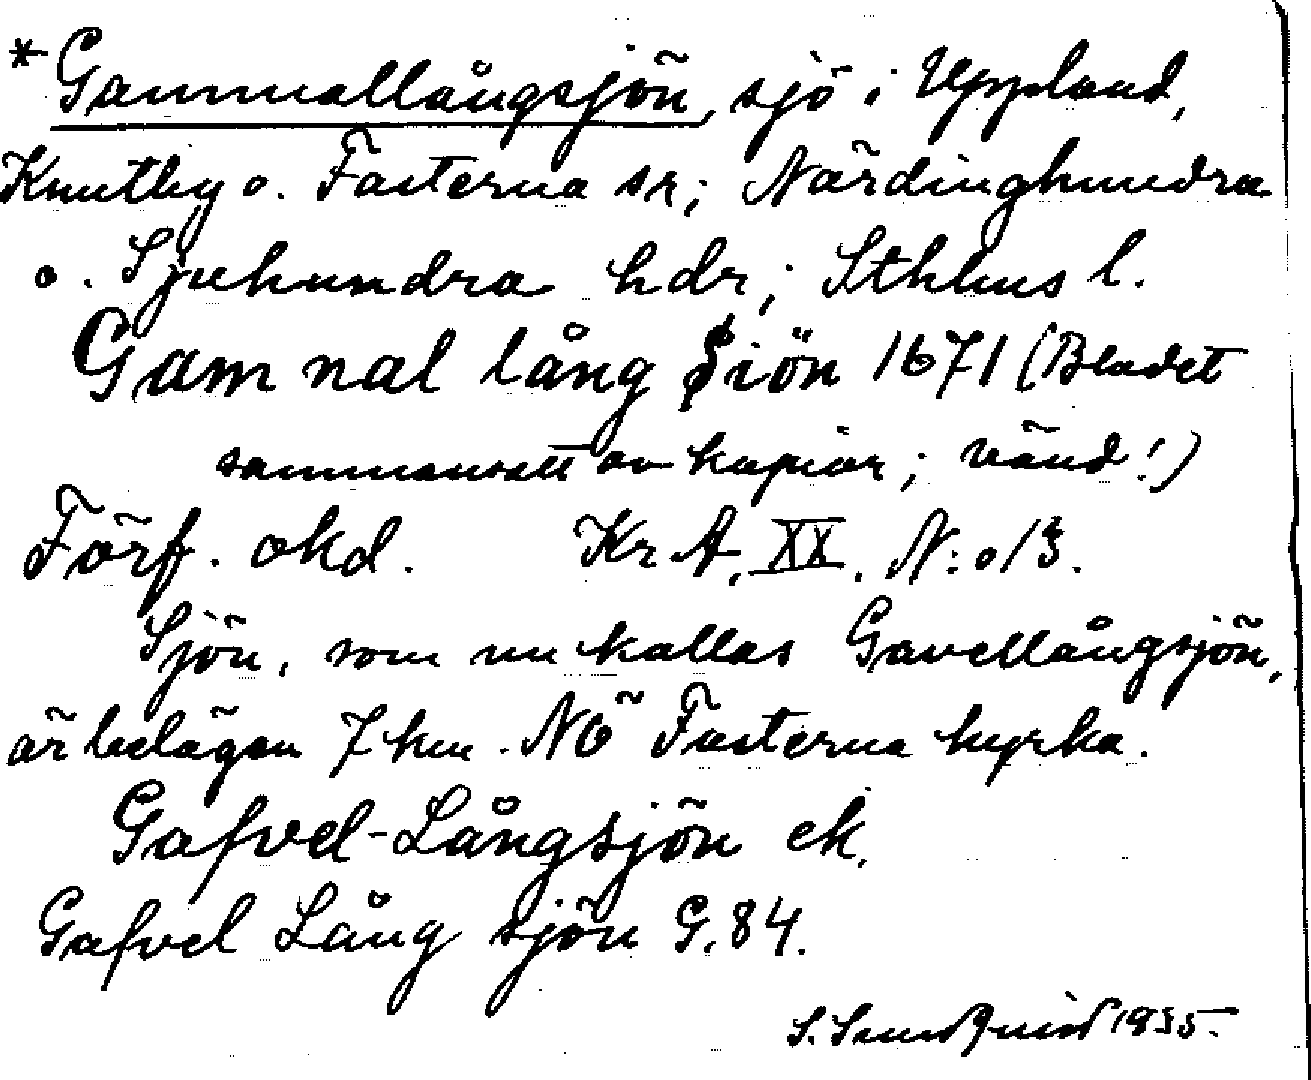 *Gammallångsjön, sjö i Uppland,
Knutby o. Fasterna sn; Närdinghundra
o. Sjuhundra hdr; Sthlms l.
Gam nal lång Siön 1671 (Bladet
sammansatt av kopior; vänd!)
Förf. okd. KrA, XX, N:o 13.
Sjön, som nu kallas Gavellångsjön,
är belägen 7 km. NÖ Fasterna kyrka.
Gafvel-Långsjön ek.
Gafvel Lång sjön G. 84.
S. Sundquist 1935.